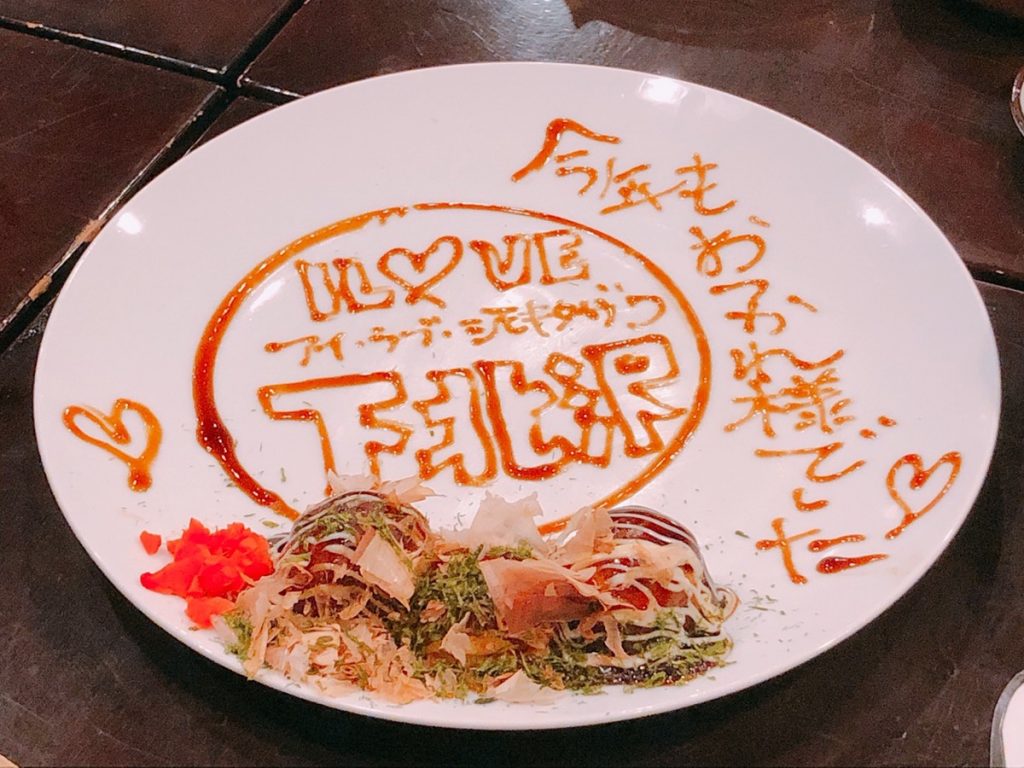 I LOVE
アイ・ラブ・シモキタザワ
下北沢
今年も、
おつかれ様でした